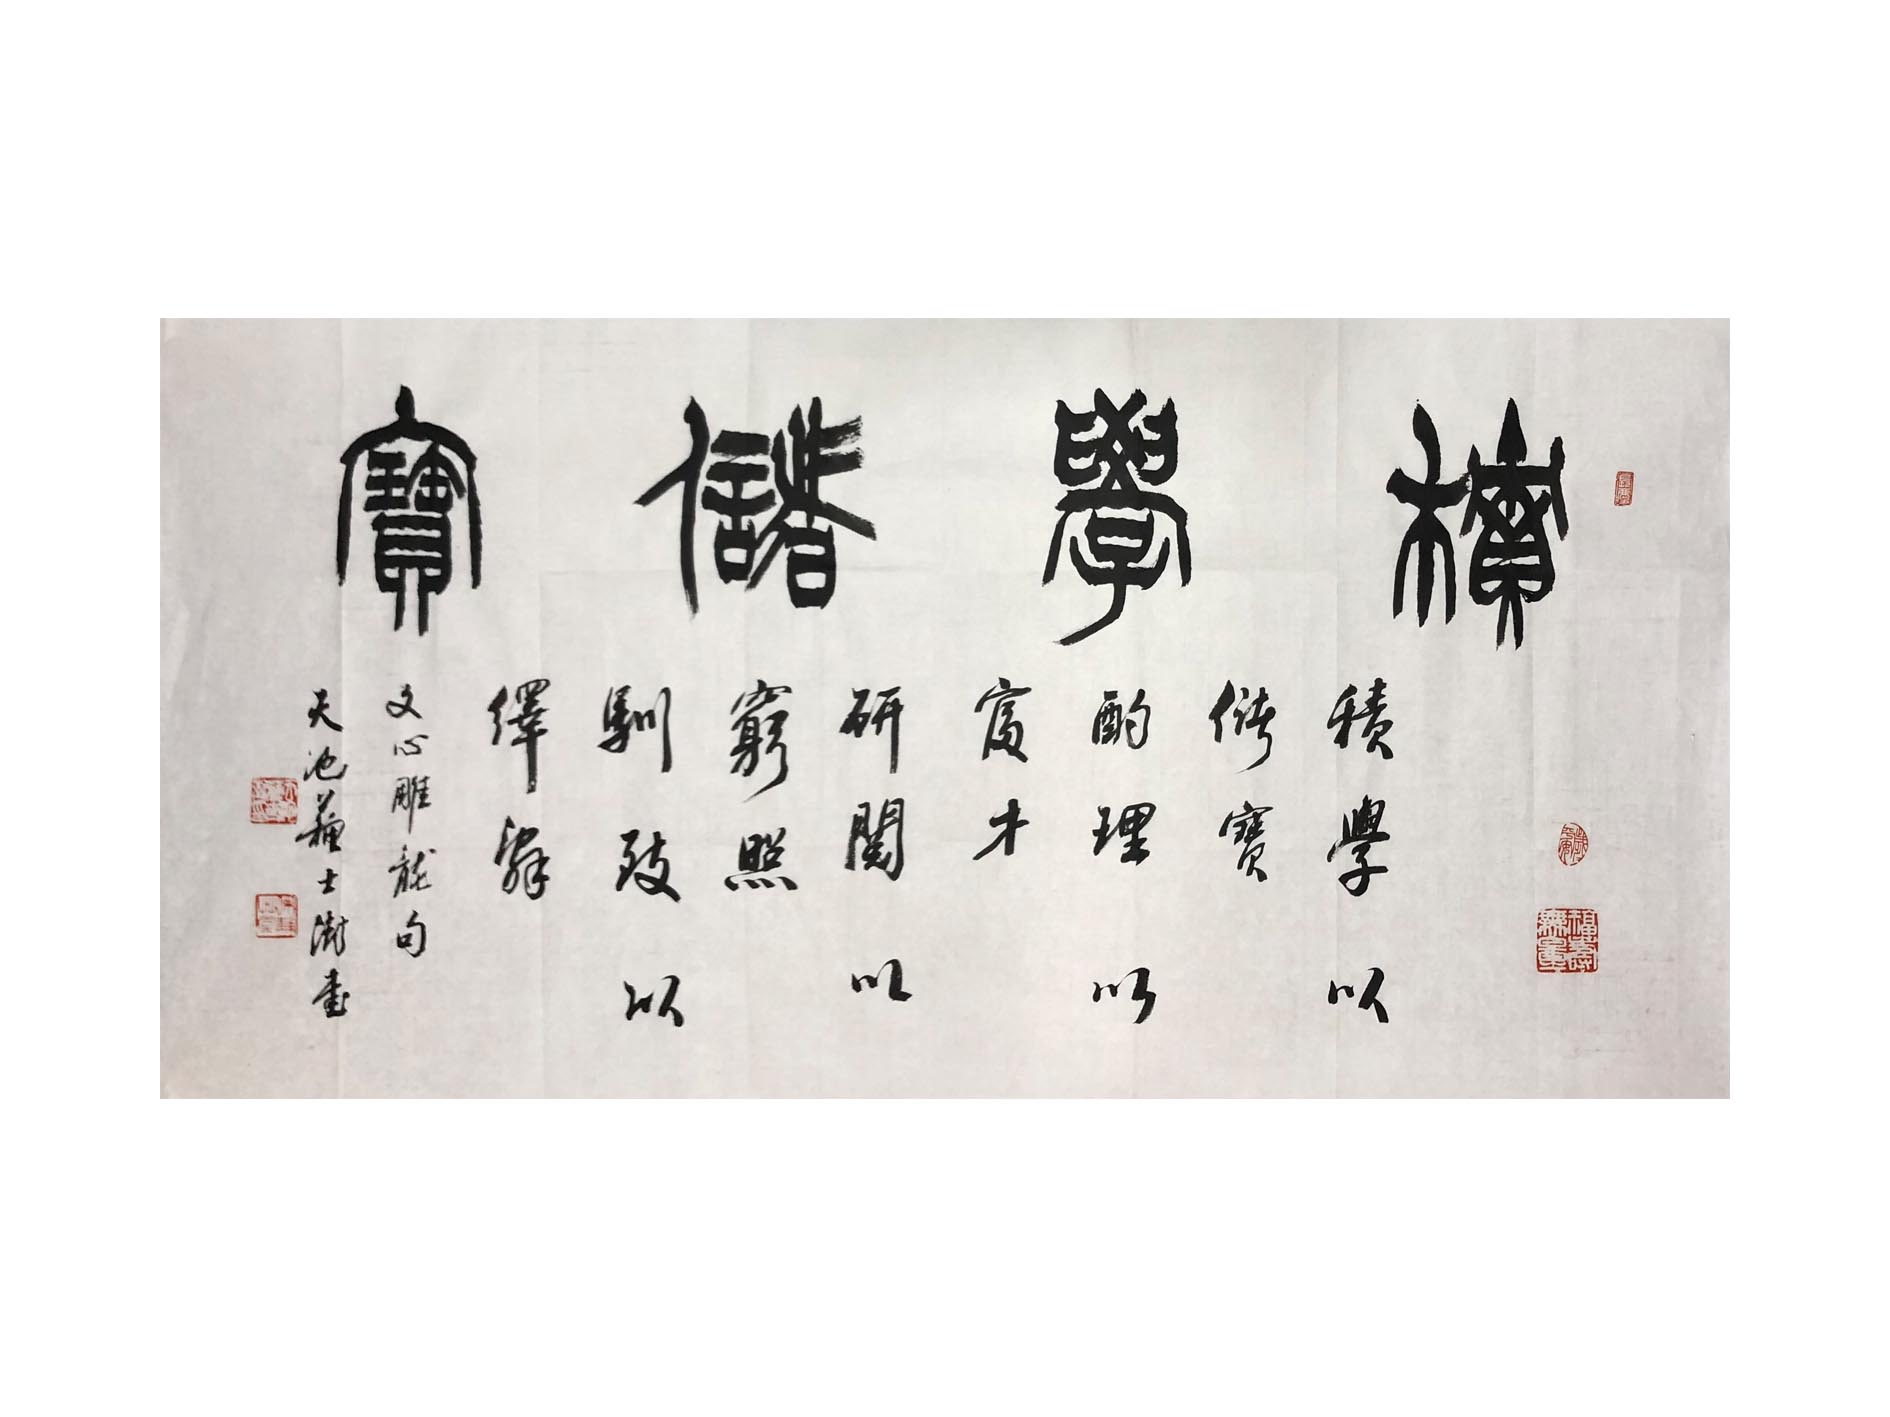 積學儲寶
積學以
儲寶
酌理以
富才
研閱以
窮照
馴致以
繹辭
文心雕龍句
天池蘇士澍書
福壽無量